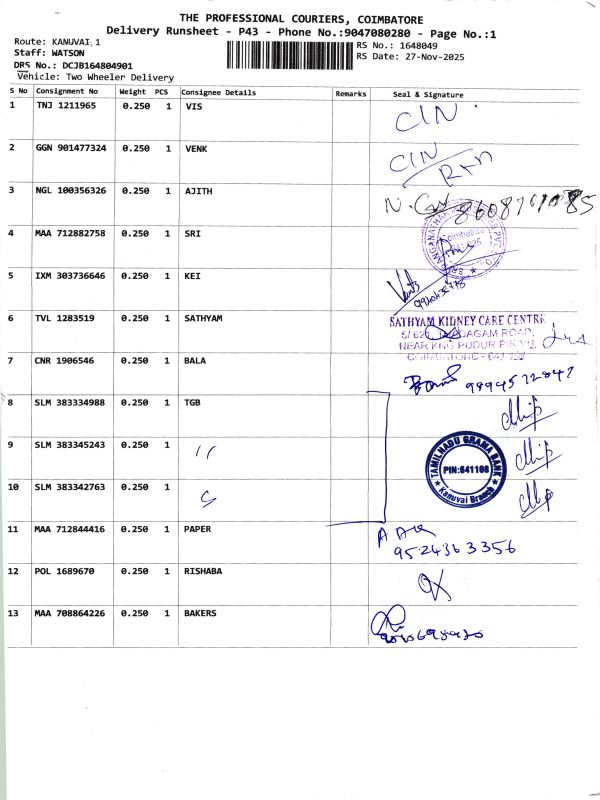 THE PROFESSIONAL COURIERS, COIMBATORE
Delivery Runsheet - P43 - Phone No.:9047080280 - Page No.:1
Route: KANUVAI, 1
Staff: WATSON
DRS No.: DCJB164804901
Vehicle: Two Wheeler Delivery
RS No.: 1648049
RS Date: 27-Nov-2025
S No Consignment No Weight PCS Consignee Details Remarks Seal & Signature
1 TNJ 1211965 0.250 1 VIS CIN
2 GGN 901477324 0.250 1 VENK CIN
3 NGL 100356326 0.250 1 AJITH
4 MAA 712882758 0.250 1 SRI
5 IXM 303736646 0.250 1 KEI
6 TVL 1283519 0.250 1 SATHYAM
SATHYAM KIDNEY CARE CENTRE
NEAR KNG PUDUR PIRIVU,
7 CNR 1906546 0.250 1 BALA
9994572847
8 SLM 383334988 0.250 1 TGB
9 SLM 383345243 0.250 1 〃
TAMILNADU GRAMA BANK
PIN:641108
Kanuvai Branch
10 SLM 383342763 0.250 1
11 MAA 712844416 0.250 1 PAPER
9524363356
12 POL 1689670 0.250 1 RISHABA
13 MAA 708864226 0.250 1 BAKERS